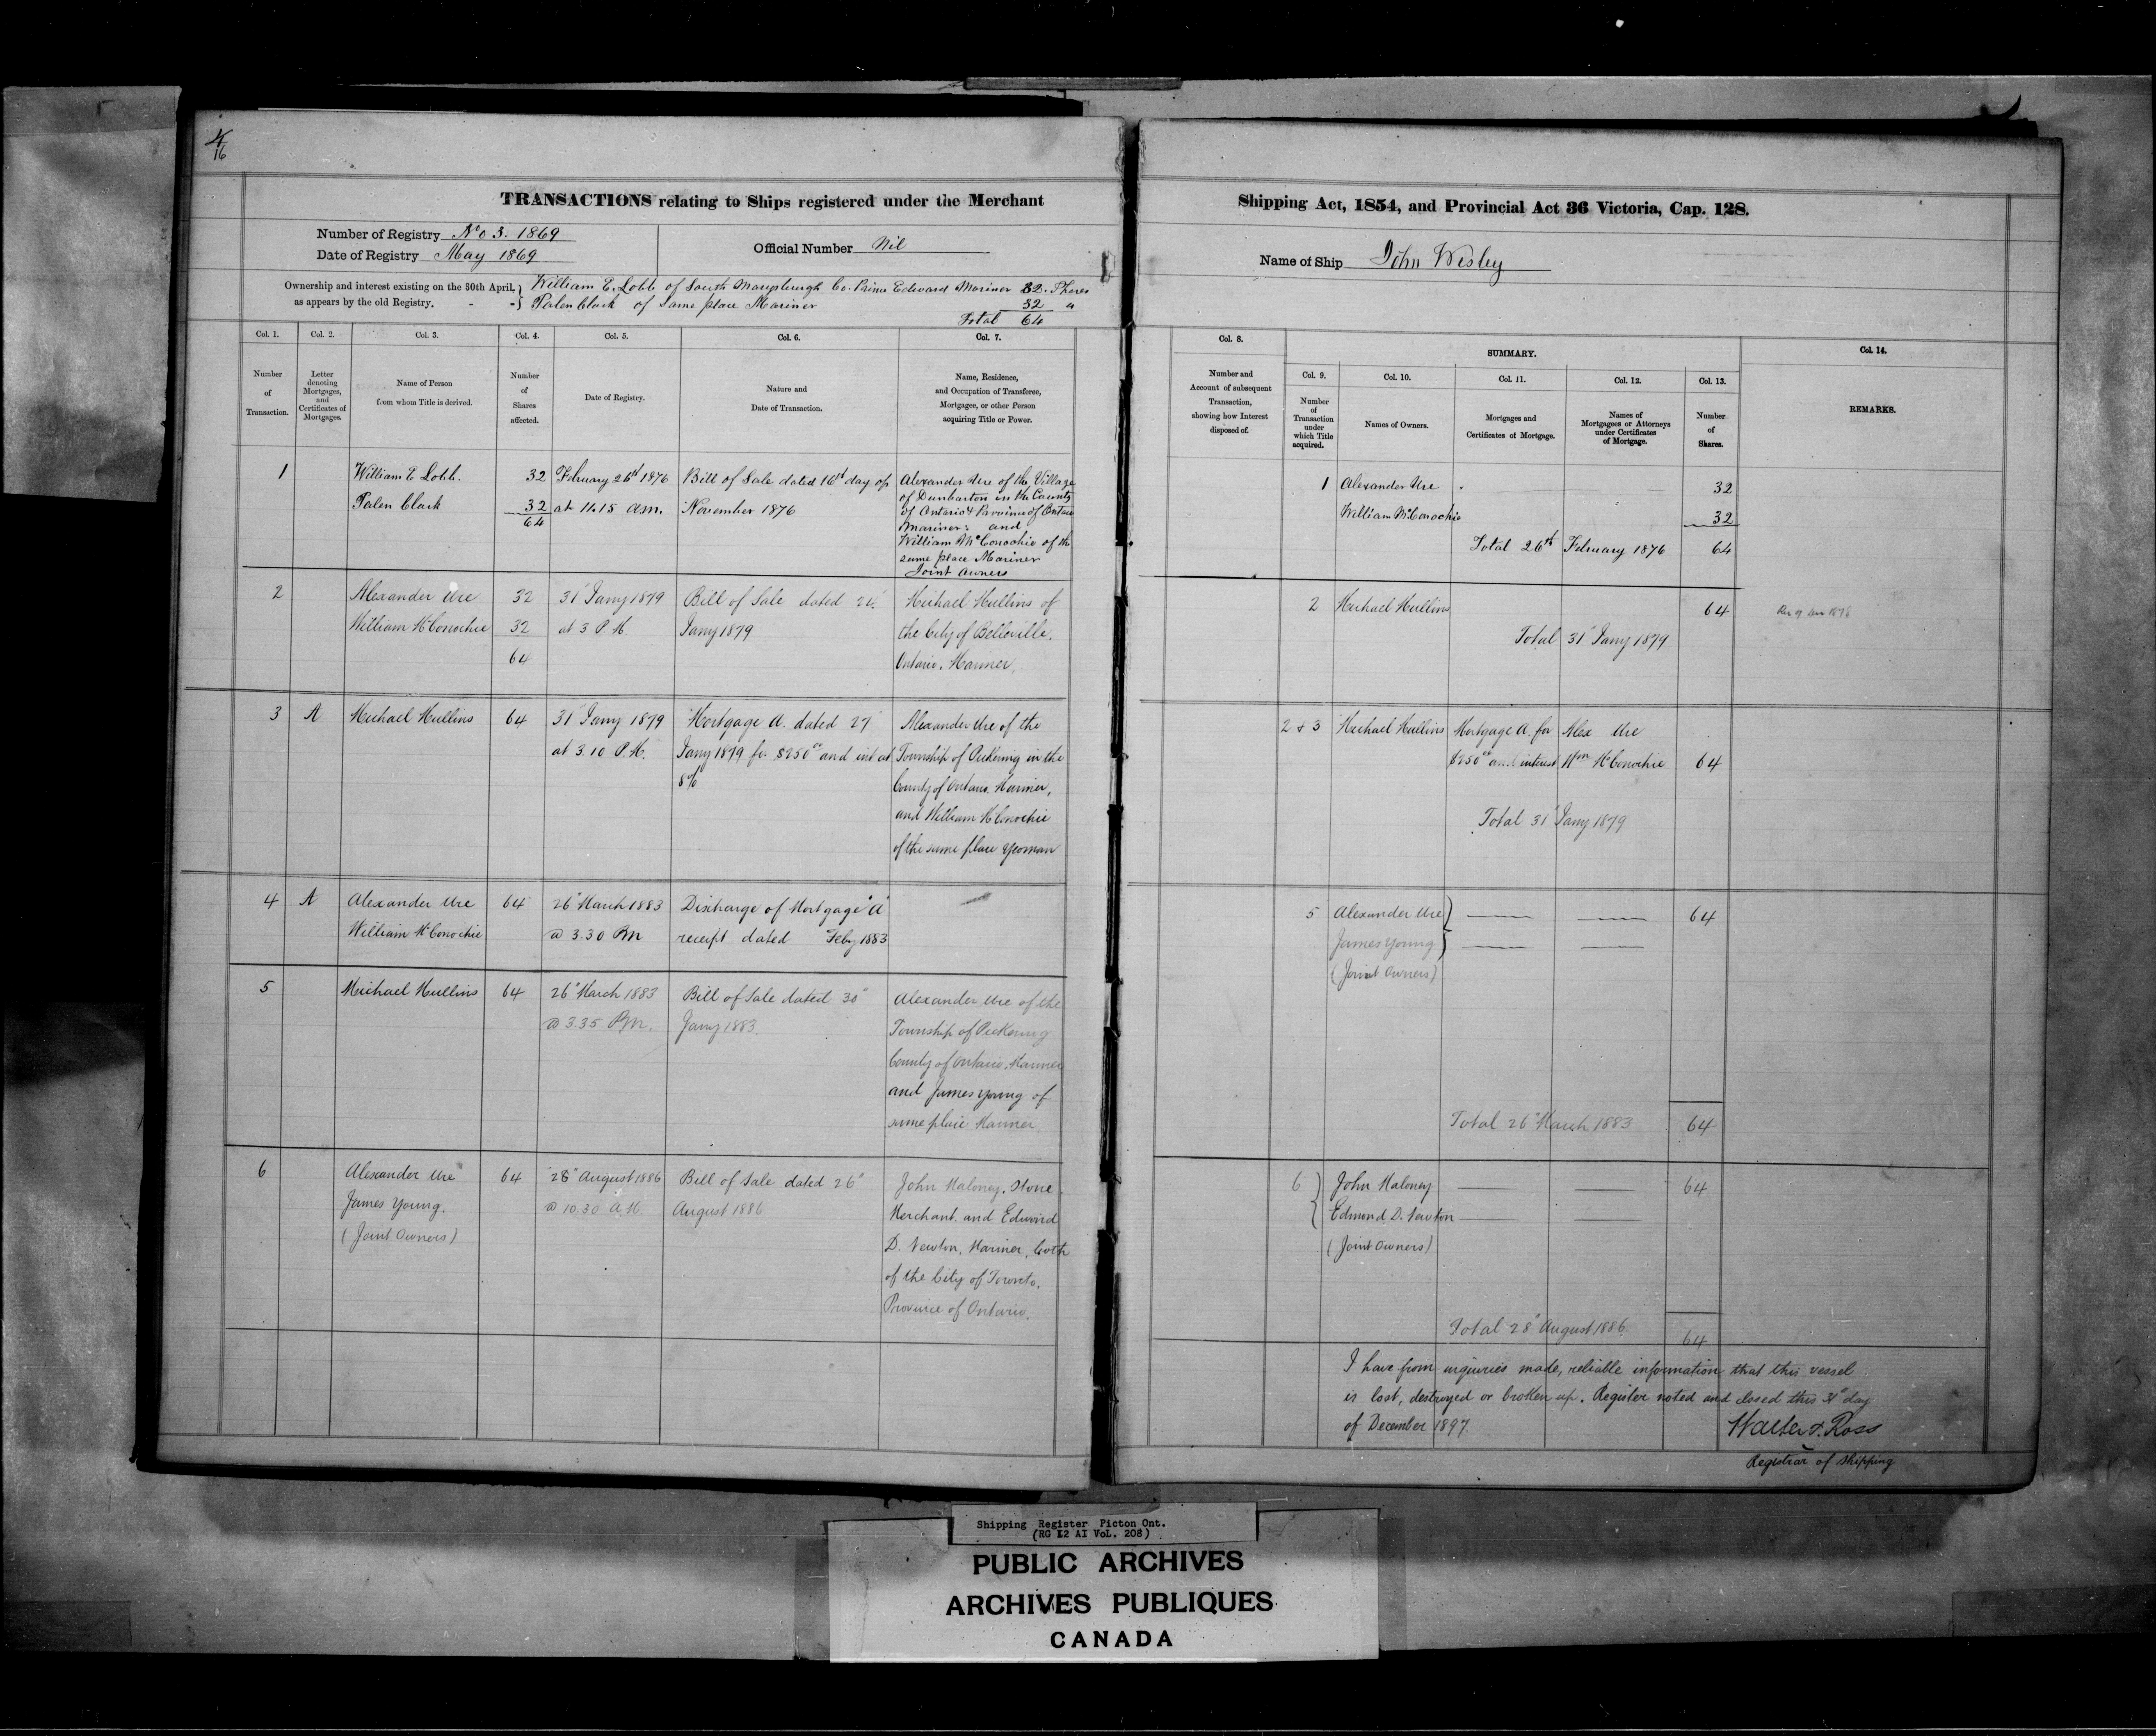 4
16
TRANSACTIONS relating to Ships registered under the Merchant
Number of Registry No 3. 1869
Date of Registry May 1869
Official Number Nil
Ownership and interest existing on the 30th April,
as appears by the old Registry.
William E. Lobb of South Co. Prince Edward Mariner 32. Shares
Palen Clark of Same place Mariner 32 "
Total 64
Col. 1.
Col. 2.
Col. 3.
Col. 4.
Col. 5.
Col. 6.
Col. 7.
Number
of
Transaction.
Letter
denoting
Mortgages,
and
Certificates of
Mortgages.
Name of Person
from whom Title is derived.
Number
of
Shares
affected.
Date of Registry.
Nature and
Date of Transaction.
Name, Residence,
and Occupation of Transferee,
Mortgagee, or other Person
acquiring Title or Power.
1
William E Lobb.
Palen Clark
32
32
64
February 26th 1876
at 11.15 am.
Bill of Sale dated 16th day of
November 1876
Alexander Ure of the Village
of Dunbarton in the County
of Ontario & Province of Ontario
Mariner: and
William McConochie of the
same place Mariner
Joint Owners
2
Alexander Ure
William McConochie
32
32
64
31" Jany 1879
at 3 P.M.
Bill of Sale dated 24"
Jany 1879
Michael Mullins of
the City of Belleville.
Ontario. Mariner.
3
A
Michael Mullins
64
31" Jany 1879
at 3.10 P.M.
Mortgage A. dated 27"
Jany 1879 for $250 00 and int at
8%
Alexander Ure of the
Township of Pickering in the
County of Ontario. Mariner,
and William McConochie
of the same place Yeoman
4
A
Alexander Ure
William McConochie
64
26" March 1883
@ 3.30 Pm
Discharge of Mortgage "A"
receipt dated Feby 1883
5
Michael Mullins
64
26" March 1883
@ 3.35 Pm.
Bill of Sale dated 30"
Jany 1883
Alexander Ure of the
Township of Pickering
County of Ontario. Mariner
and James Young of
same place Mariner.
6
Alexander Ure
James Young.
(Joint Owners)
64
28" August 1886
@ 10.30 A.M.
Bill of Sale dated 26"
August 1886
John Maloney, Stone
Merchant. and Edward
D. Newton, Mariner, both
of the City of Toronto.
Province of Ontario.
Shipping Act, 1854, and Provincial Act 36 Victoria, Cap. 128.
Name of Ship John Wesley
Col. 8.
SUMMARY.
Col. 14.
Number and
Account of subsequent
Transaction,
showing how Interest
disposed of.
Col. 9.
Col. 10.
Col. 11.
Col. 12.
Col. 13.
Number
of
Transaction
under
which Title
acquired.
Names of Owners.
Mortgages and
Certificates of Mortgage.
Names of
Mortgagees or Attorneys
under Certificates
of Mortgage.
Number
of
Shares.
REMARKS.
1
Alexander Ure
William McConochie
32
32
Total 26th February 1876 64
2
Michael Mullins
64
Total 31" Jany 1879
2 & 3
Michael Mullins
Mortgage A. for
$250 00 and interest
Alex Ure
Wm McConochie
64
Total 31" Jany 1879
5
Alexander Ure
James Young
(Joint Owners)
64
Total 26" March 1883 64
6
John Maloney
Edmond D. Newton
(Joint Owners)
64
Total 28" August 1886. 64
I have from inquiries made, reliable information that this vessel
is lost, destroyed or broken up. Register noted and closed this 31" day
of December 1897.
Walter T. Ross
Registrar of Shipping
Shipping Register Picton Ont.
(RG 12 A1 VoL. 208)
PUBLIC ARCHIVES
ARCHIVES PUBLIQUES
CANADA